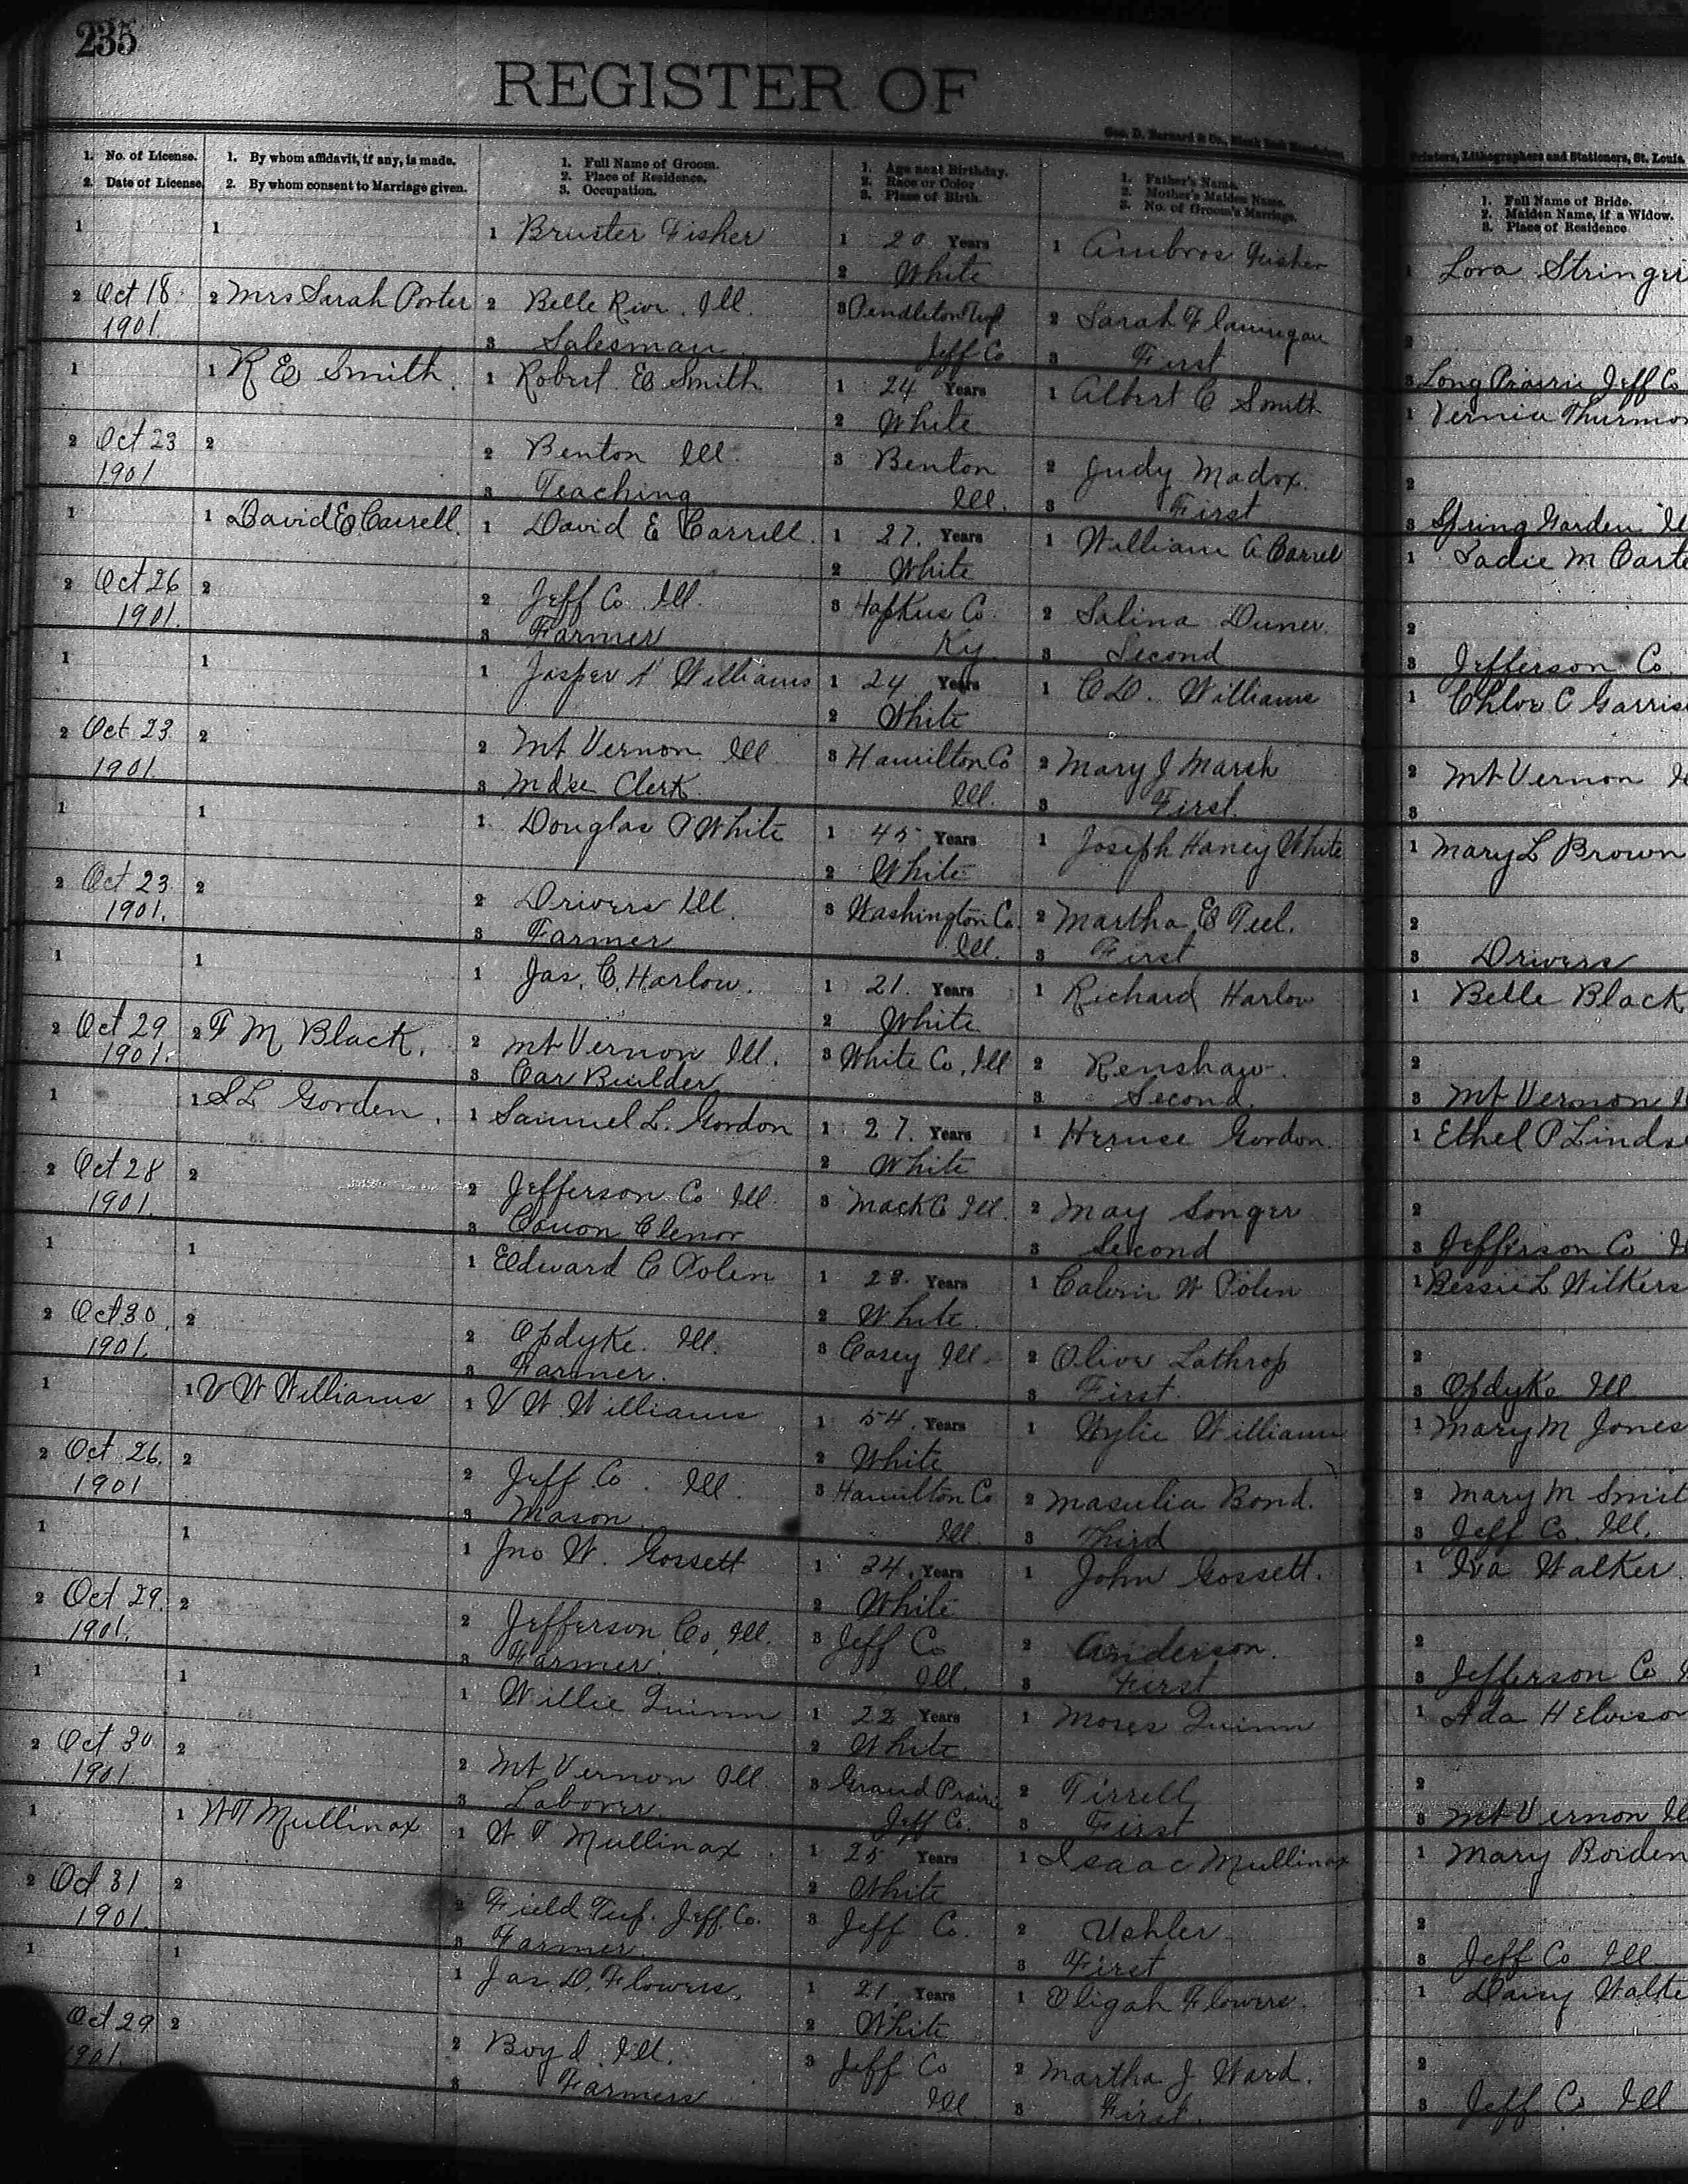 235
REGISTER OF
Geo. D. Barnard & Co., Blank Book
Printers, Lithographers and Stationers, St. Louis.
1. No. of License.
2. Date of License.
1. By whom affidavit, if any, is made.
2. By whom consent to Marriage given.
1. Full Name of Groom.
2. Place of Residence.
3. Occupation.
1. Age next Birthday.
2. Race or Color
3. Place of Birth.
1. Father's Name.
2. Mother's Maiden Name.
3. No. of Groom's Marriage.
1. Full Name of Bride.
2. Maiden Name, if a Widow.
3. Place of Residence
1 1 1 Bruster Fisher 1 20 Years 1 Ambros Fisher 1 Lora Stringer
2 White
2 Oct 18 2 Mrs Sarah Porter 2 Belle River. Ill. 3 Pendleton Twp 2 Sarah Flannigan 2
1901 3 Salesman Jeff Co 3 First 3 Long Prairie Jeff Co
1 1 R E Smith 1 Robert E Smith 1 24 Years 1 Albert C Smith 1 Vernia Thurmon
2 White
2 Oct 23 2 2 Benton Ill. 3 Benton 2 Judy Madox. 2
1901 3 Teaching Ill. 3 First 3 Spring Garden Il
1 1 David E Carrell. 1 David E Carrell. 1 27. Years 1 William A Carrel 1 Sadie M Carte
2 White
2 Oct 26 2 2 Jeff Co Ill. 3 Hopkus Co. 2 Salina Duner. 2
1901. 3 Farmer Ky 3 Second 3 Jefferson Co
1 1 1 Jasper A Williams 1 24 Years 1 C D. Williams 1 Chloe C Garris
2 White
2 Oct 23 2 2 Mt Vernon Ill 3 Hamilton Co 2 Mary J Marsh 2 Mt Vernon Il
1901. 3 Mdse Clerk Ill. 3 First. 3
1 1 1 Douglas P White 1 45 Years 1 Joseph Haney White 1 Mary L Brown
2 White
2 Oct 23 2 2 Drivers Ill. 3 Washington Co. 2 Martha E Teel. 2
1901. 3 Farmer Ill. 3 First 3 Drivers
1 1 1 Jas. C. Harlow. 1 21. Years 1 Richard Harlow 1 Belle Black
2 White
2 Oct 29 2 F M Black. 2 Mt Vernon Ill. 3 White Co, Ill 2 Renshaw. 2
1901. 3 Car Builder 3 Second. 3 Mt Vernon Il
1 1 S L Gorden. 1 Samuel L. Gordon 1 27. Years 1 Gordon. 1 Ethel P Linds
2 White
2 Oct 28 2 2 Jefferson Co Ill. 3 Ill. 2 May Songer 2
1901. 3 3 Second 3 Jefferson Co Il
1 1 1 Edward C Polen 1 28. Years 1 Calvin W Polen 1 Bessie L Wilkers
2 White
2 Oct 30 2 2 Opdyke. Ill. 3 Casey Ill. 2 Olive Lathrop 2
1901. 3 Farmer. 3 First. 3 Opdyke Ill
1 1 V W Williams 1 V W. Williams 1 54. Years 1 Wylie Williams 1 Mary M Jones
2 White
2 Oct 26. 2 2 Jeff Co. Ill. 3 Hamilton Co 2 Masulia Bond. 2 Mary M Smit
1901 3 Mason Ill. 3 Third 3 Jeff Co. Ill.
1 1 1 Jno W. Gossett 1 34. Years 1 John Gossett. 1 Iva Walker
2 White
2 Oct 29. 2 2 Jefferson Co, Ill. 3 Jeff Co 2 Anderson. 2
1901. 3 Farmer. Ill. 3 First 3 Jefferson Co
1 1 1 Willie Quinn 1 22 Years 1 Moses Quinn 1 Ada H Elvison
2 White
2 Oct 30 2 2 Mt Vernon Ill. 3 Grand Prairie 2 Tirrell 2
1901. 3 Laborer. Jeff Co. 3 First 3 Mt Vernon Il
1 1 W T Mullinax 1 W T Mullinax. 1 25 Years 1 Isaac Mullinax 1 Mary Boiden
2 White
2 Oct 31 2 2 Field Twp. Jeff Co. 3 Jeff Co. 2 Ushler. 2
1901. 3 Farmer. 3 First 3 Jeff Co Ill
1 1 1 Jas. D. Flowers. 1 21. Years 1 Eligah Flowers. 1 Daisy Walte
2 White
Oct 29 2 2 Boyd. Ill. 3 Jeff Co 2 Martha J Ward. 2
1901. 3 Farmer Ill 3 First. 3 Jeff Co Ill